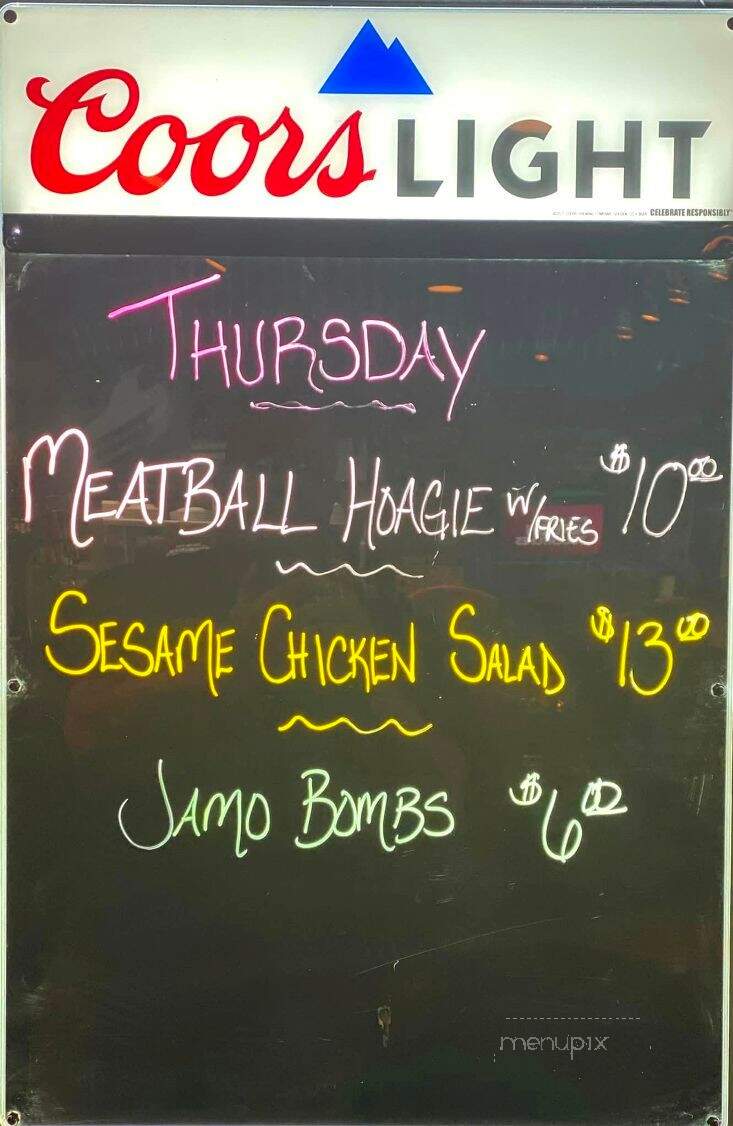 Coors LIGHT
CELEBRATE RESPONSIBLY
THURSDAY
MEATBALL HOAGIE W/FRIES $10.00
SESAME CHICKEN SALAD $13.00
JAMO BOMBS $6.00
menupix